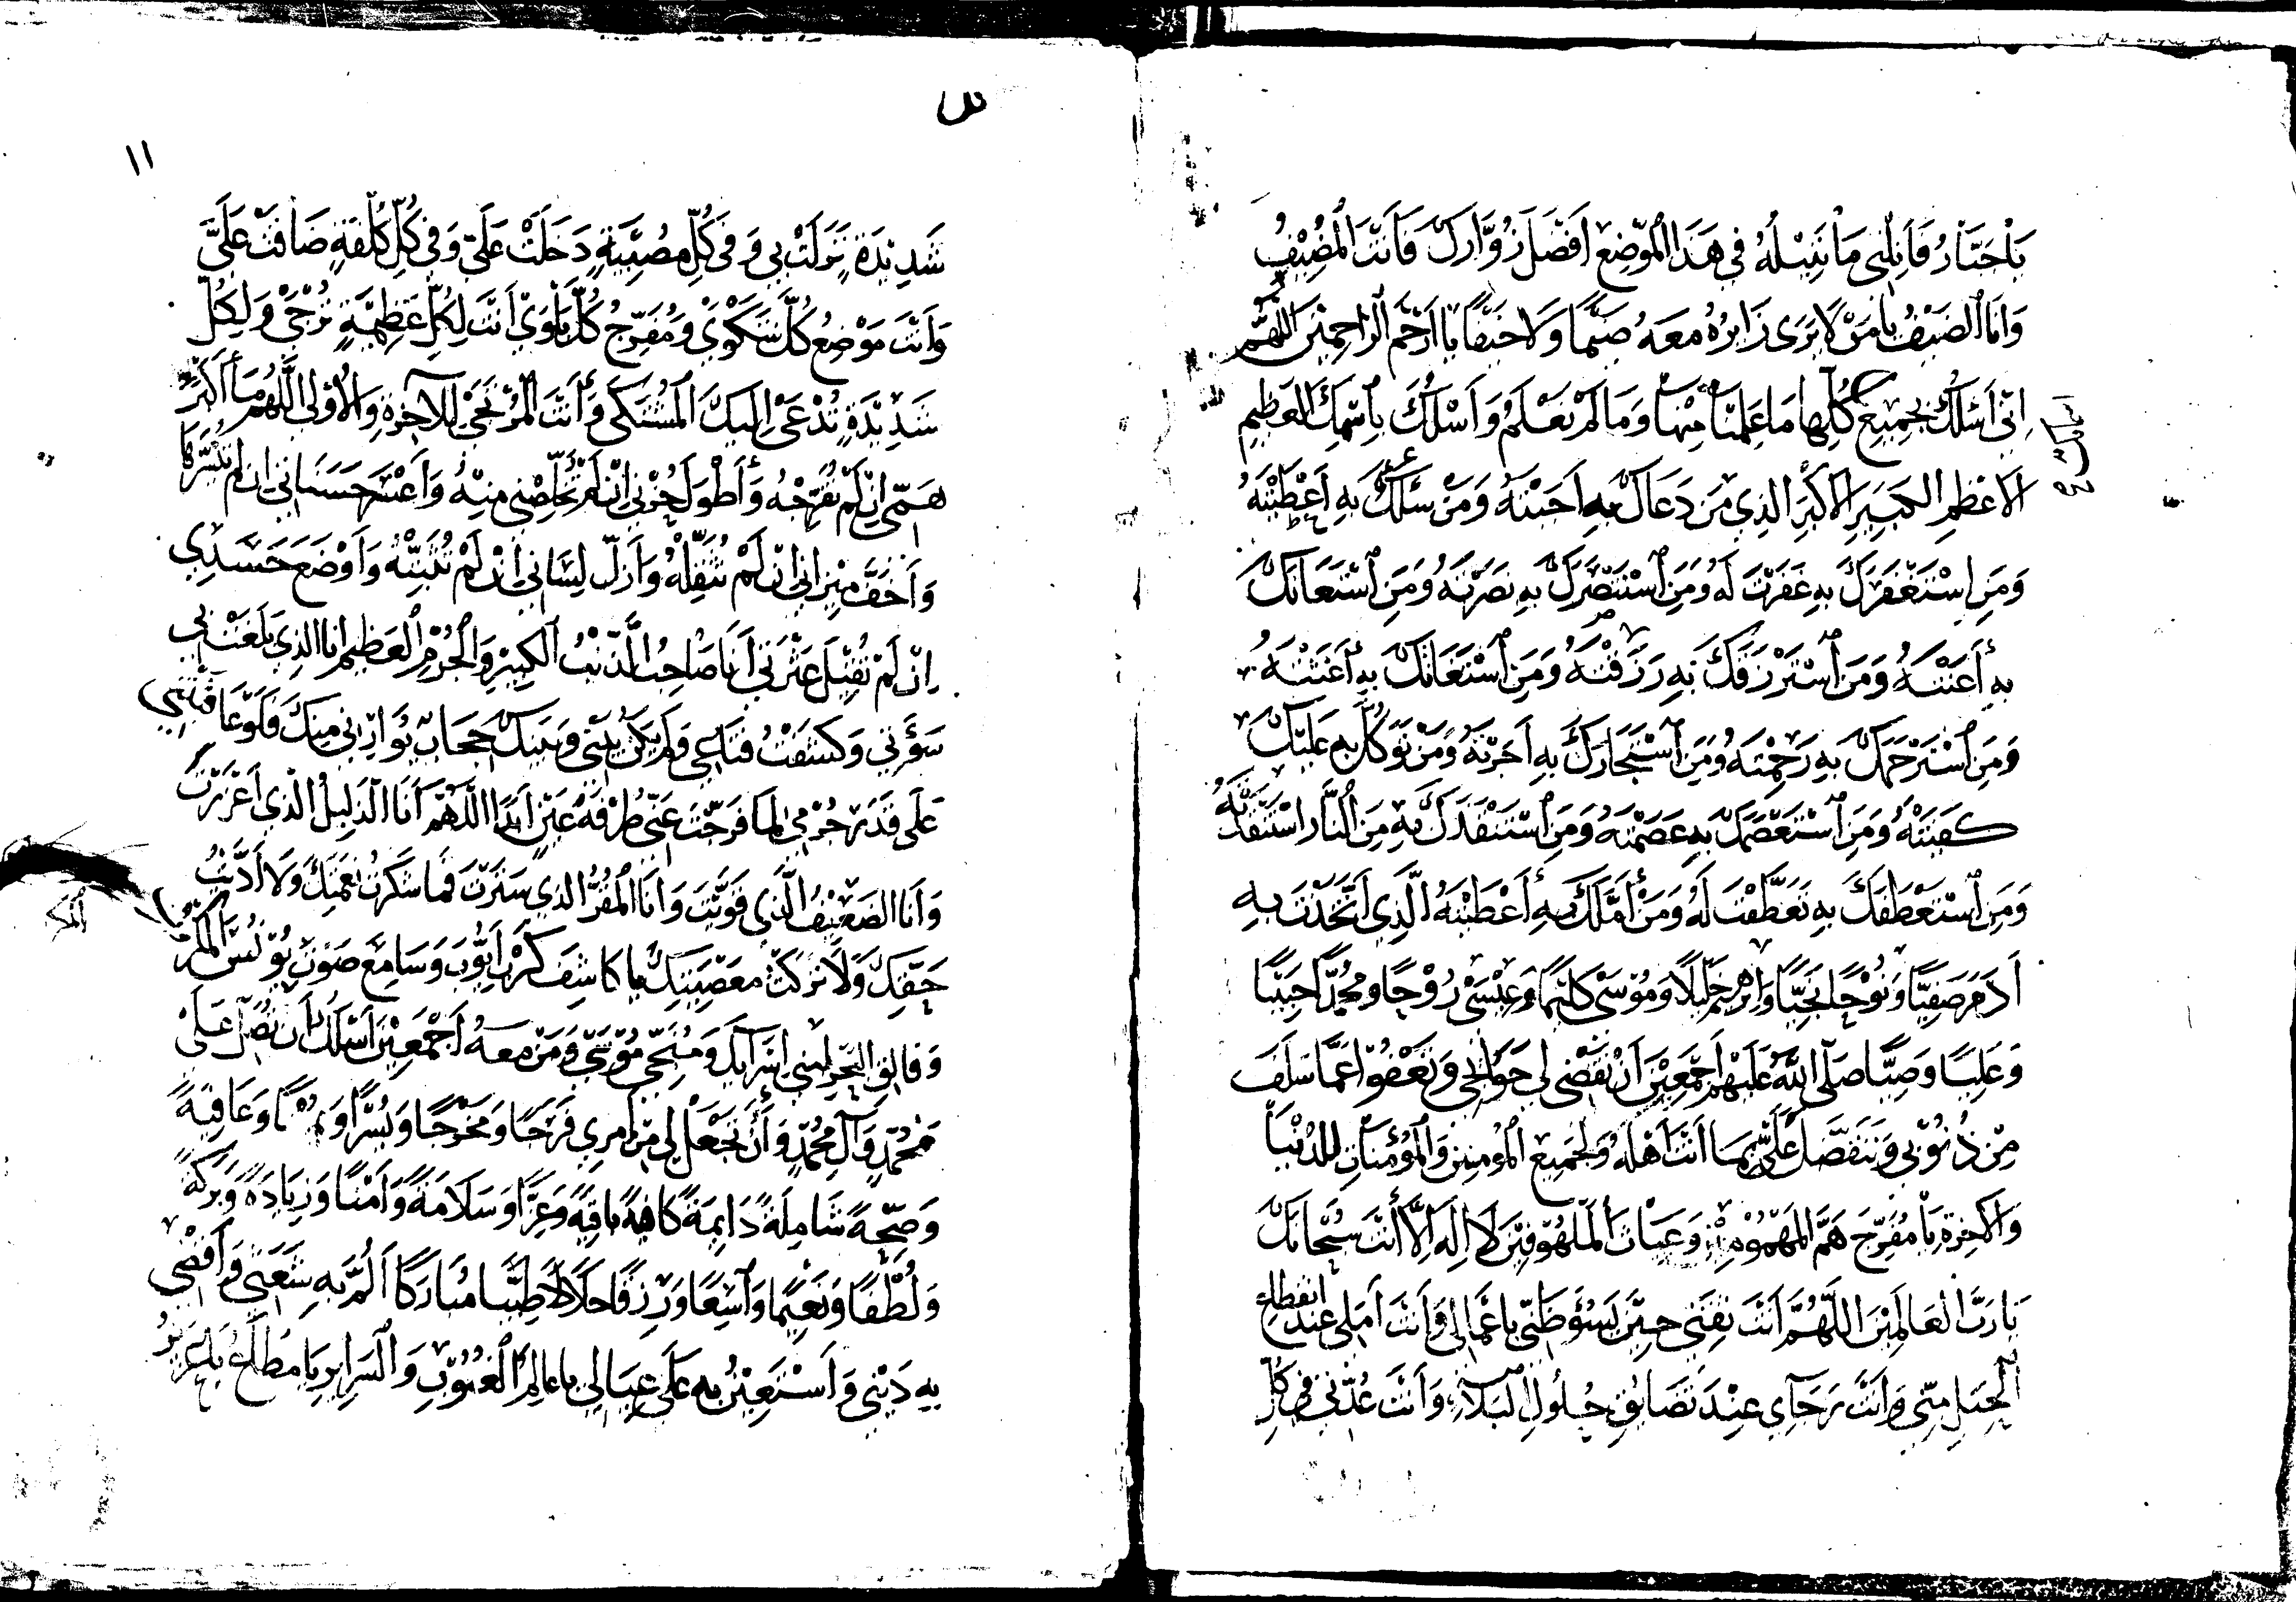 يَا حَنَّانُ فَاَنِلْنِي مَا تُنِيلُهُ فِي هَذَا الْمَوْضِعِ اَفْضَلَ زُوَّارِكَ فَاَنْتَ الْمُضِيْفُ
وَاَنَا الضَّيْفُ يَا مَنْ لَا يَرَى زَايِرُهُ مَعَهُ ضَيْمًا وَلَا حَيْفًا يَا اَرْحَمَ الرَّاحِمِيْنَ اَللّٰهُمَّ
اِنِّي اَسْئَلُكَ بِجَمِيْعِ كُلِّهَا مَا عَلِمْنَا مِنْهَا وَمَا لَمْ نَعْلَمْ وَاَسْئَلُكَ بِاسْمِكَ الْعَظِيْمِ
اسمائك صح
الْاَعْظَمِ الْكَبِيْرِ الْاَكْبَرِ الَّذِي مَنْ دَعَاكَ بِهِ اَجَبْتَهُ وَمَنْ سَئَلَكَ بِهِ اَعْطَيْتَهُ
وَمَنِ اسْتَغْفَرَكَ بِهِ غَفَرْتَ لَهُ وَمَنِ اسْتَنْصَرَكَ بِهِ نَصَرْتَهُ وَمَنِ اسْتَعَانَكَ
بِهِ اَعَنْتَهُ وَمَنِ اسْتَرْزَقَكَ بِهِ رَزَقْتَهُ وَمَنِ اسْتَغَاثَكَ بِهِ اَغَثْتَهُ
وَمَنِ اسْتَرْحَمَكَ بِهِ رَحِمْتَهُ وَمَنِ اسْتَجَارَكَ بِهِ اَجَرْتَهُ وَمَنْ تَوَكَّلَ بِهِ عَلَيْكَ
كَفَيْتَهُ وَمَنِ اسْتَعْصَمَكَ بِهِ عَصَمْتَهُ وَمَنِ اسْتَنْقَذَكَ بِهِ مِنَ النَّارِ اسْتَنْقَذْتَهُ
وَمَنِ اسْتَعْطَفَكَ بِهِ تَعَطَّفْتَ لَهُ وَمَنْ اَمَّلَكَ بِهِ اَعْطَيْتَهُ الَّذِي اتَّخَذْتَ بِهِ
اٰدَمَ صَفِيًّا وَنُوْحًا نَجِيًّا وَاِبْرٰهِيْمَ خَلِيْلًا وَمُوْسٰى كَلِيْمًا وَعِيْسٰى رُوْحًا وَمُحَمَّدًا حَبِيْبًا
وَعَلِيًّا وَصِيًّا صَلَّى اللّٰهُ عَلَيْهِمْ اَجْمَعِيْنَ اَنْ تَقْضِيَ لِي حَوَائِجِي وَتَعْفُوَ عَمَّا سَلَفَ
مِنْ ذُنُوْبِي وَتَتَفَضَّلَ عَلَيَّ بِمَا اَنْتَ اَهْلُهُ وَلِجَمِيْعِ الْمُؤْمِنِيْنَ وَالْمُؤْمِنَاتِ لِلدُّنْيَا
وَالْاٰخِرَةِ يَا مُفَرِّجَ هَمِّ الْمَهْمُوْمِيْنَ وَغِيَاثَ الْمَلْهُوْفِيْنَ لَا اِلٰهَ اِلَّا اَنْتَ سُبْحَانَكَ
يَا رَبَّ الْعَالَمِيْنَ اَللّٰهُمَّ اَنْتَ ثِقَتِي حِيْنَ يَسُوْءُ ظَنِّي بِاَعْمَالِي وَاَنْتَ اَمَلِي عِنْدَ انْقِطَاعِ
الْحِيَلِ مِنِّي وَاَنْتَ رَجَآئِي عِنْدَ تَضَايُقِ حُلُوْلِ الْبَلَآءِ وَاَنْتَ عُدَّتِي فِي كُلِّ
١١
شَدِيْدَةٍ نَزَلَتْ بِي وَفِي كُلِّ مُصِيْبَةٍ دَخَلَتْ عَلَيَّ وَفِي كُلِّ كُلْفَةٍ ضَاقَتْ عَلَيَّ
وَاَنْتَ مَوْضِعُ كُلِّ شَكْوٰى وَمُفَرِّجُ كُلِّ بَلْوٰى اَنْتَ لِكُلِّ عَظِيْمَةٍ تُرْجٰى وَلِكُلِّ
شَدِيْدَةٍ تُدْعٰى اِلَيْكَ الْمُشْتَكٰى وَاَنْتَ الْمُرْتَجٰى لِلْاٰخِرَةِ وَالْاُوْلٰى اَللّٰهُمَّ مَا اَكْبَرَ
هَمِّي اِنْ لَمْ تُفَرِّجْهُ وَاَطْوَلَ حُزْنِي اِنْ لَمْ تُخَلِّصْنِي مِنْهُ وَاَعْسَرَ حَسَنَاتِي اِنْ لَمْ تُيَسِّرْهَا
وَاَخَفَّ مِيْزَانِي اِنْ لَمْ تُثَقِّلْهُ وَاَزَلَّ لِسَانِي اِنْ لَمْ تُثَبِّتْهُ وَاَوْضَعَ جَسَدِي
اِنْ لَمْ تُقِلْ عَثْرَتِي اَنَا صَاحِبُ الذَّنْبِ الْكَبِيْرِ وَالْجُرْمِ الْعَظِيْمِ اَنَا الَّذِي بَلَغَتْ بِي
سَوْءَتِي وَكَشَفْتُ قِنَاعِي وَلَمْ يَكُنْ بَيْنِي وَبَيْنَكَ حِجَابٌ يُوَارِيْنِي مِنْكَ فَلَوْ عَاقَبْتَنِي
عَلٰى قَدْرِ جُرْمِي لَمَا فَرَّجْتَ عَنِّي طُرْفَةَ عَيْنٍ اَبَدًا اَللّٰهُمَّ اَنَا الذَّلِيْلُ الَّذِي اَعْزَزْتَ
وَاَنَا الضَّعِيْفُ الَّذِي قَوَّيْتَ وَاَنَا الْمُقِرُّ الَّذِي سَتَرْتَ فَمَا شَكَرْتُ نِعْمَتَكَ وَلَا اَدَّيْتُ
حَقَّكَ وَلَا تَرَكْتُ مَعْصِيَتَكَ يَا كَاشِفَ كَرْبِ اَيُّوْبَ وَسَامِعَ صَوْتِ يُوْنُسَ الْمَكْرُوْبِ
وَفَالِقَ الْبَحْرِ لِبَنِي اِسْرَآئِيْلَ وَمُنْجِيَ مُوْسٰى وَمَنْ مَعَهُ اَجْمَعِيْنَ اَسْئَلُكَ اَنْ تُصَلِّيَ عَلٰى
مُحَمَّدٍ وَآلِ مُحَمَّدٍ وَاَنْ تَجْعَلَ لِي مِنْ اَمْرِي فَرَجًا وَمَخْرَجًا وَيُسْرًا وَعَافِيَةً
وَصِحَّةً شَامِلَةً دَايِمَةً كَافِيَةً بَاقِيَةً وَعِزًّا وَسَلَامَةً وَاَمْنًا وَزِيَادَةً وَبَرَكَةً
وَلُطْفًا وَنَعِيْمًا وَاسِعًا وَرِزْقًا حَلَالًا طَيِّبًا مُبَارَكًا اَلُمُّ بِهِ شَعَثِي وَاَقْضِي
بِهِ دَيْنِي وَاَسْتَعِيْنُ بِهِ عَلٰى عِيَالِي يَا عَالِمَ الْغُيُوْبِ وَالسَّرَايِرِ يَا مُطَّلِعُ يَا عَزِيْزُ